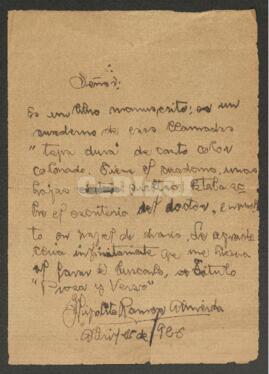 Señor:
Es un libro manuscrito; es un
cuaderno de esos llamados
"tapa dura" de canto color
colorado. Tiene el cuaderno, unas
hojas sueltas. Estaba so
bre el escritorio del doctor, envuel
to en papel de diario. Le agrade
cería infinitamente que me hiciera
el favor de buscarlo, se titula
"Prosa y Verso"
Hipólito Ramon Almeida